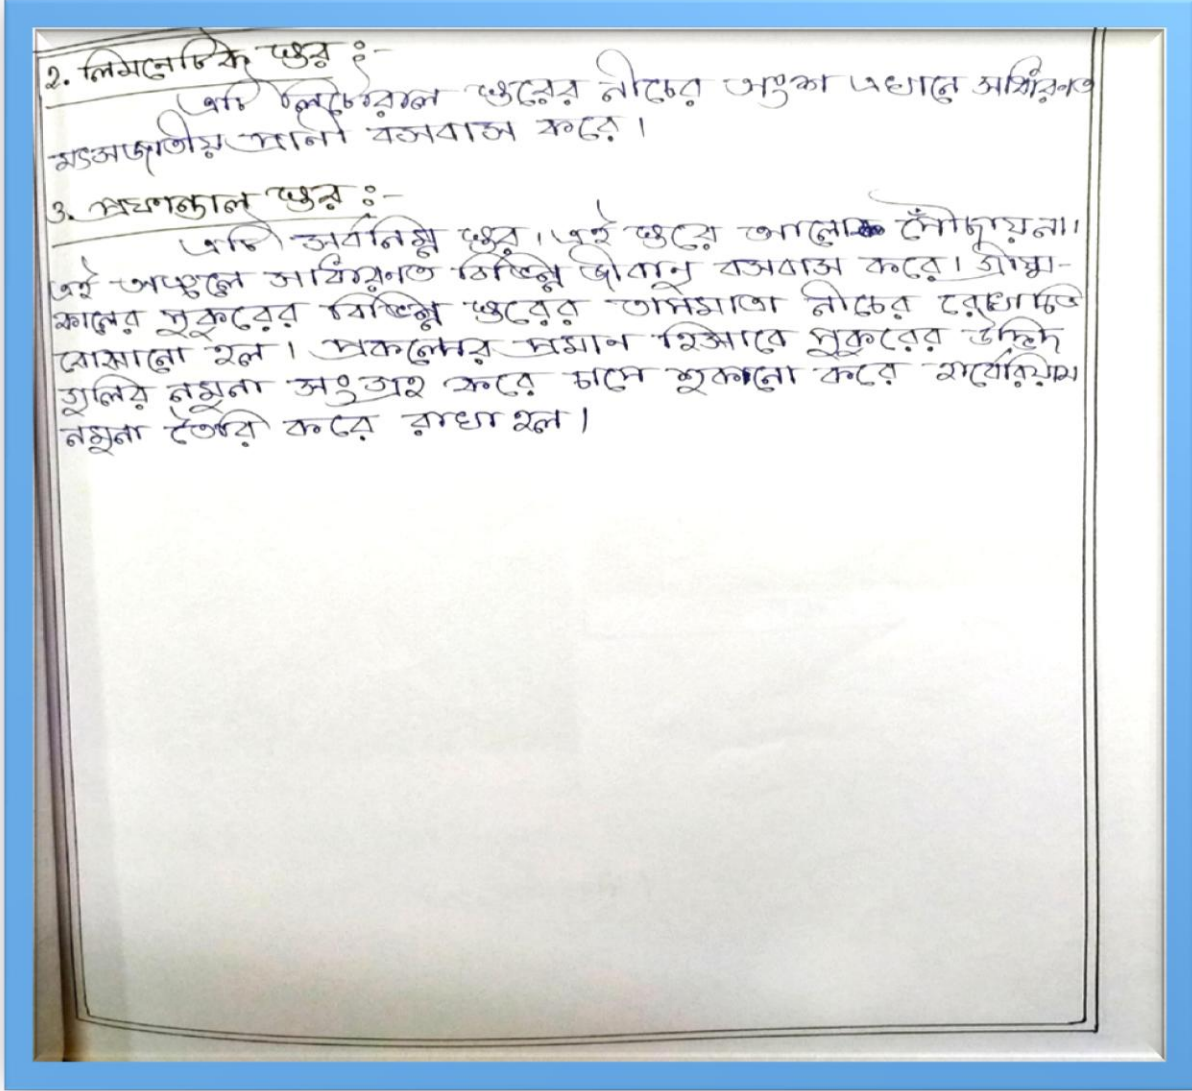 ২. লিমনেটিক স্তর :-
এটি লিটোরাল স্তরের নীচের অংশ এখানে সাধারণত
মৎসজাতীয় প্রানী বসবাস করে।
৩. প্রফান্ডাল স্তর :-
এটি সর্বনিম্ন স্তর। এই স্তরে আলো পৌঁছায়না।
এই অঞ্চলে সাধারনত বিভিন্ন জীবানু বসবাস করে। গ্রীষ্ম-
কালের পুকুরের বিভিন্ন স্তরের তাপমাত্রা নীচের রেখাচিত্র
বোঝানো হল। প্রকল্পের প্রমান হিসাবে পুকুরের উদ্ভিদ
গুলির নমুনা সংগ্রহ করে চাপে শুকানো করে হার্বেরিয়াম
নমুনা তৈরি করে রাখা হল।